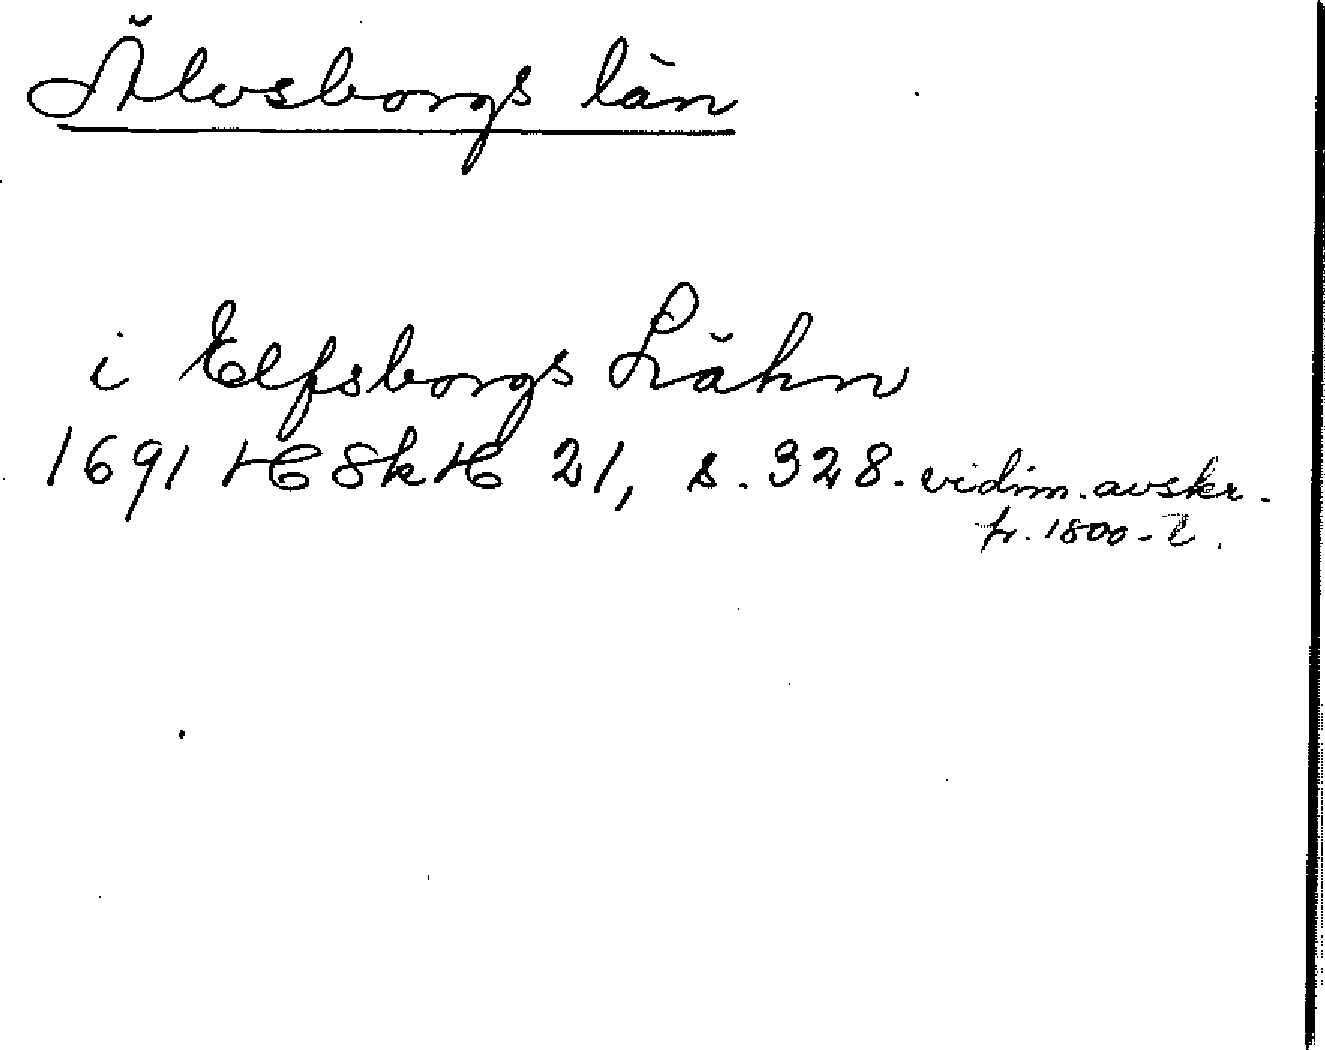 Älvsborgs län
i Elfsborgs Lähn
1691 HSkH 21, s. 328. vidim. avskr.
fr. 1800-t.